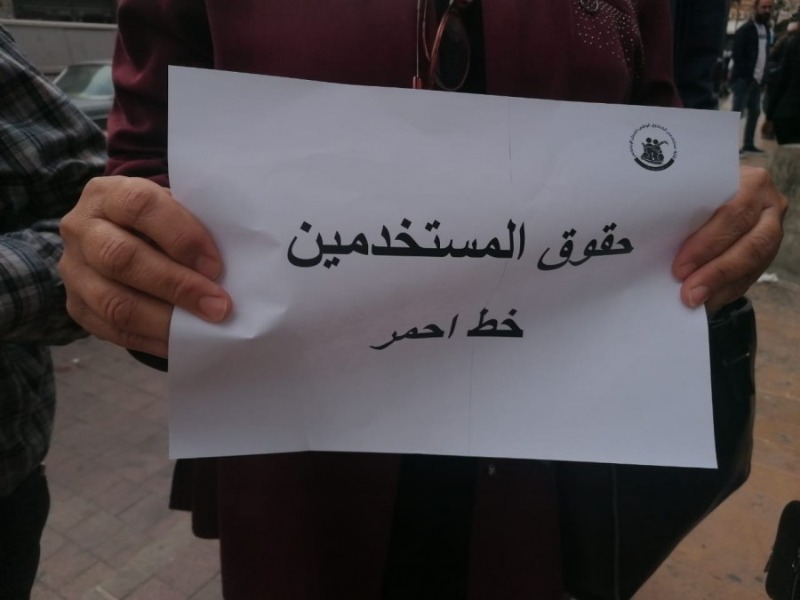 حقوق المستخدمين
خط احمر